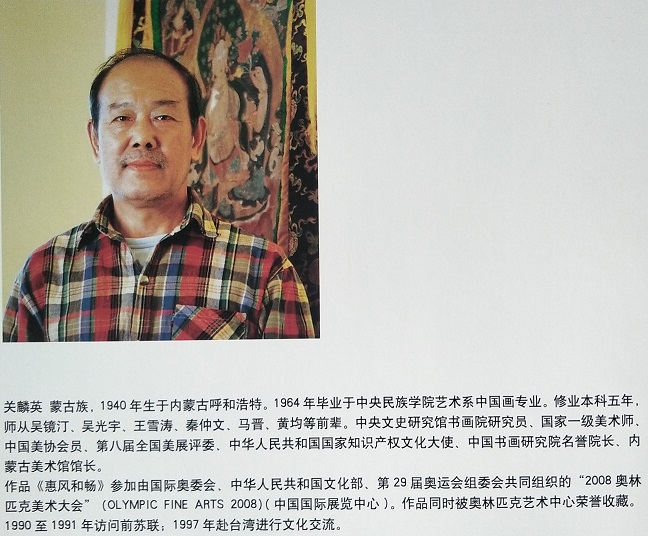 关麟英 蒙古族，1940年生于内蒙古呼和浩特。1964年毕业于中央民族学院艺术系中国画专业。修业本科五年，
师从吴镜汀、吴光宇、王雪涛、秦仲文、马晋、黄均等前辈。中央文史研究馆书画院研究员、国家一级美术师、
中国美协会员、第八届全国美展评委、中华人民共和国国家知识产权文化大使、中国书画研究院名誉院长、内
蒙古美术馆馆长。
作品《惠风和畅》参加由国际奥委会、中华人民共和国文化部、第29届奥运会组委会共同组织的“2008奥林
匹克美术大会”（OLYMPIC FINE ARTS 2008)(中国国际展览中心)。作品同时被奥林匹克艺术中心荣誉收藏。
1990至1991年访问前苏联；1997年赴台湾进行文化交流。